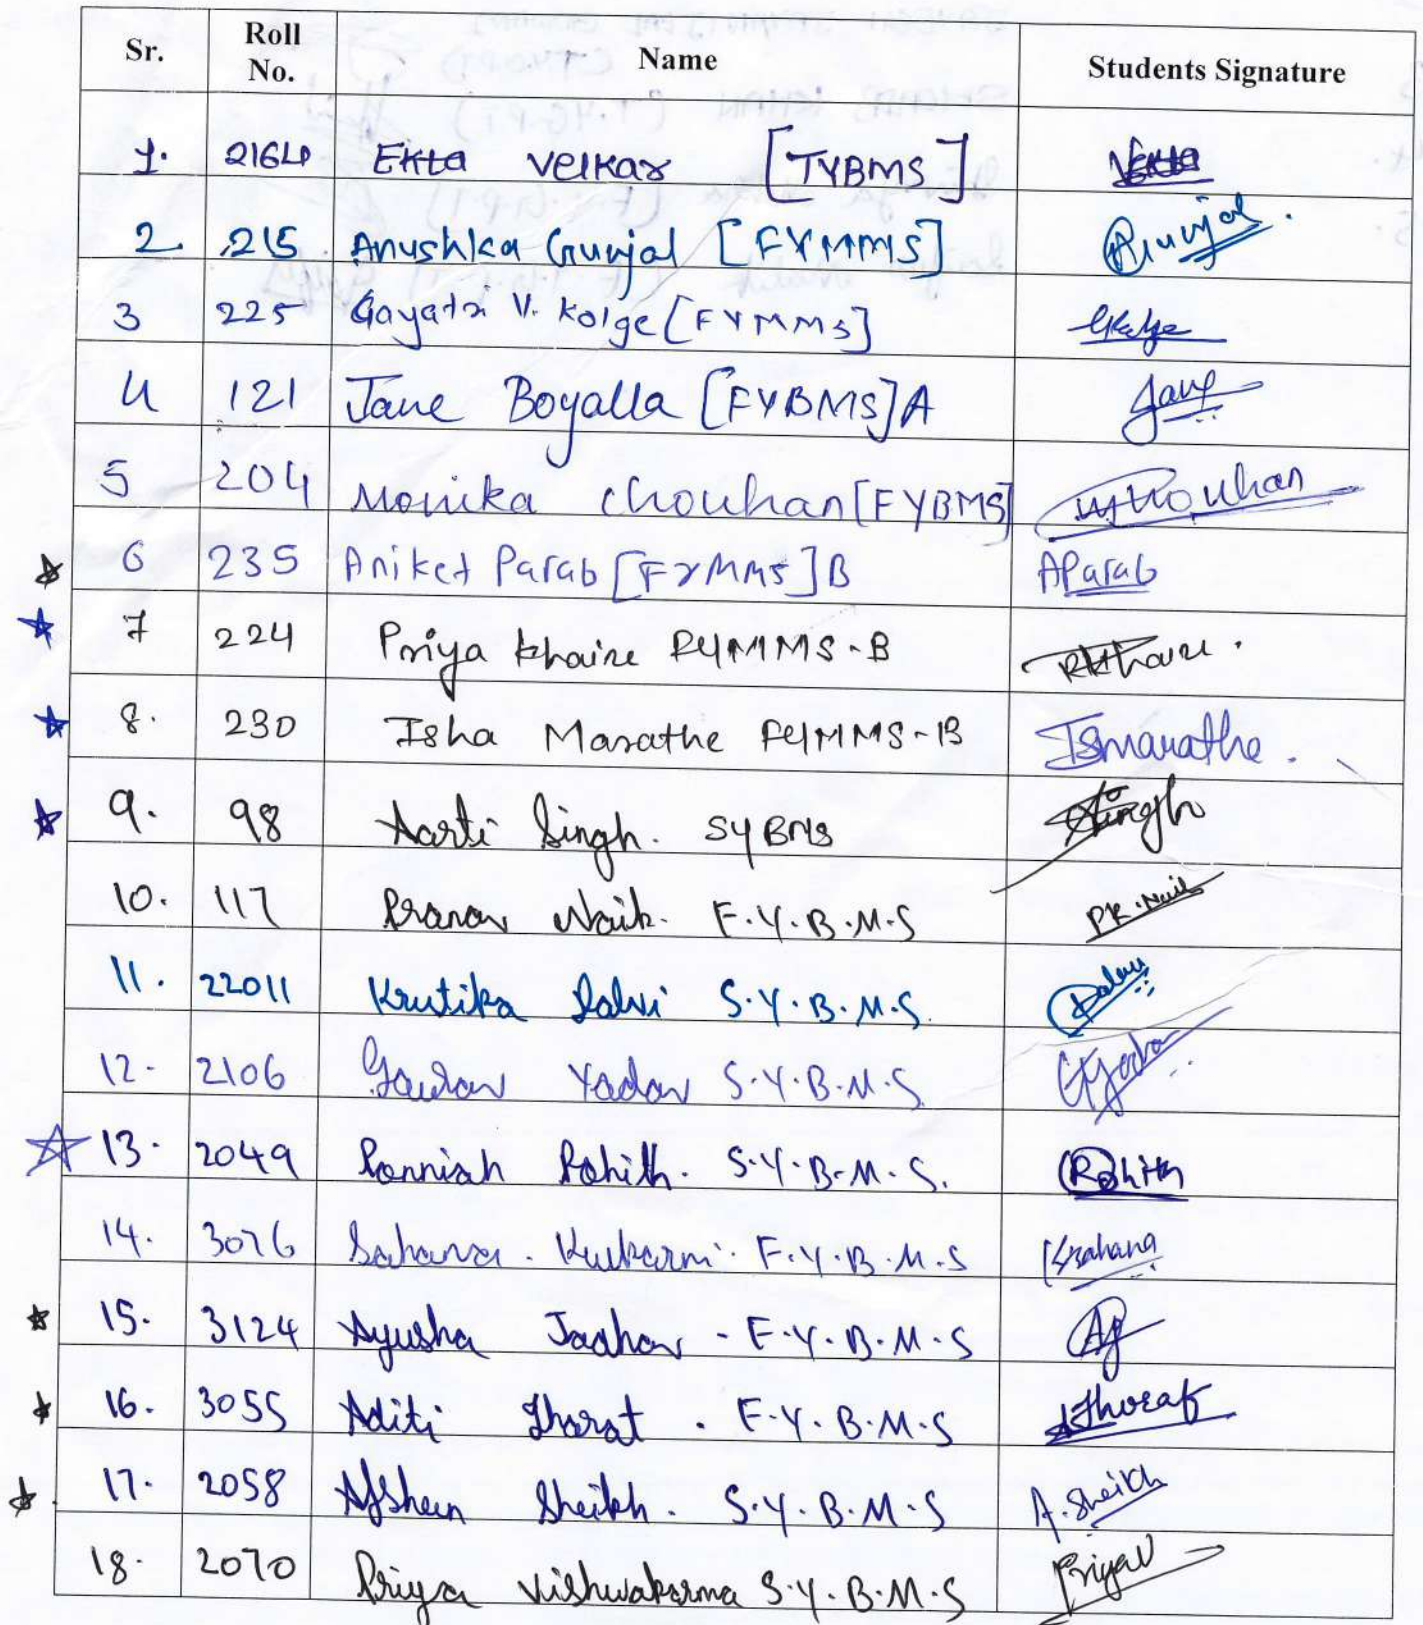 Sr. Roll No. Name Students Signature
1. 2164 Ekta Velkar [TYBMS]
2. 215 Anushka Gunjal [FYMMS] Gunjal.
3 225 Gayatri V. Kolge [FYMMS] GKolge
4 121 Jane Boyalla [FYBMS]A Jane
5 204 Monika Chouhan [FYBMS] MChouhan
6 235 Aniket Parab [FYMMS]B AParab
7 224 Priya Khaire FYMMS-B PKhaire.
8. 230 Isha Marathe FYMMS-B Ismarathe.
9. 98 Aarti Singh. SYBMS ASingh
10. 117 Pranav Naik. F.Y.B.M.S PK.Naik
11. 22011 Krutika Dalvi S.Y.B.M.S. Dalvi
12. 2106 Gaurav Yadav S.Y.B.M.S. GYadav
13. 2049 Ponniah Rohith. S.Y.B.M.S. Rohith
14. 3076 Sahana. Kulkarni. F.Y.B.M.S Ksahana
15. 3124 Ayusha Jadhav - F.Y.B.M.S AJ
16. 3055 Aditi Thorat. F.Y.B.M.S AThorat
17. 2058 Afsheen Sheikh. S.Y.B.M.S A.Sheikh
18. 2070 Priya Vishwakarma S.Y.B.M.S PriyaV